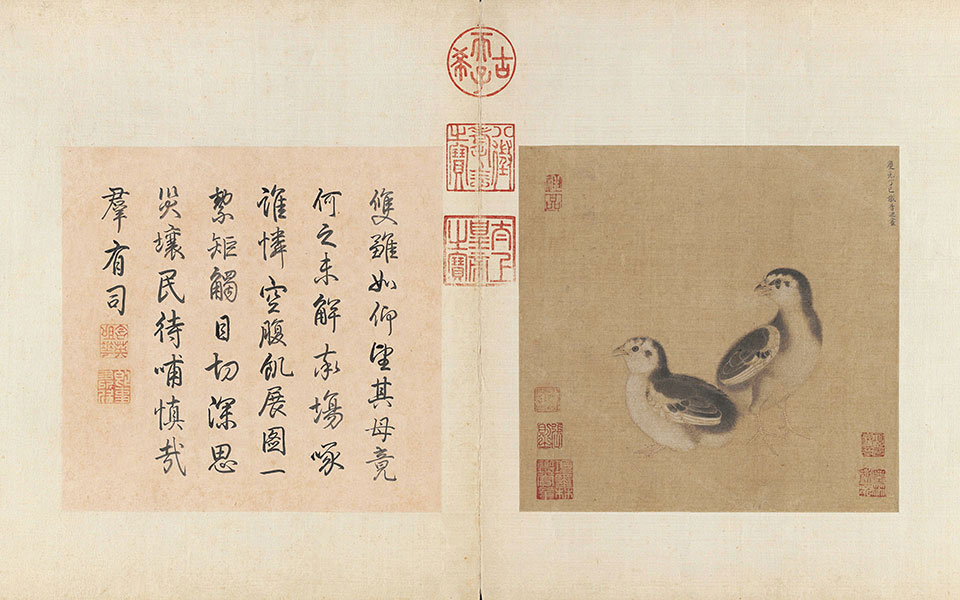 慶元丁巳歲李迪畫
古希天子
八徵耄念之寶
太上皇帝之寶
雙雛如仰望其母竟
何之未解塲啄
誰憐空腹飢展圖一
絜矩觸目切深思
災壤民待哺慎哉
羣有司